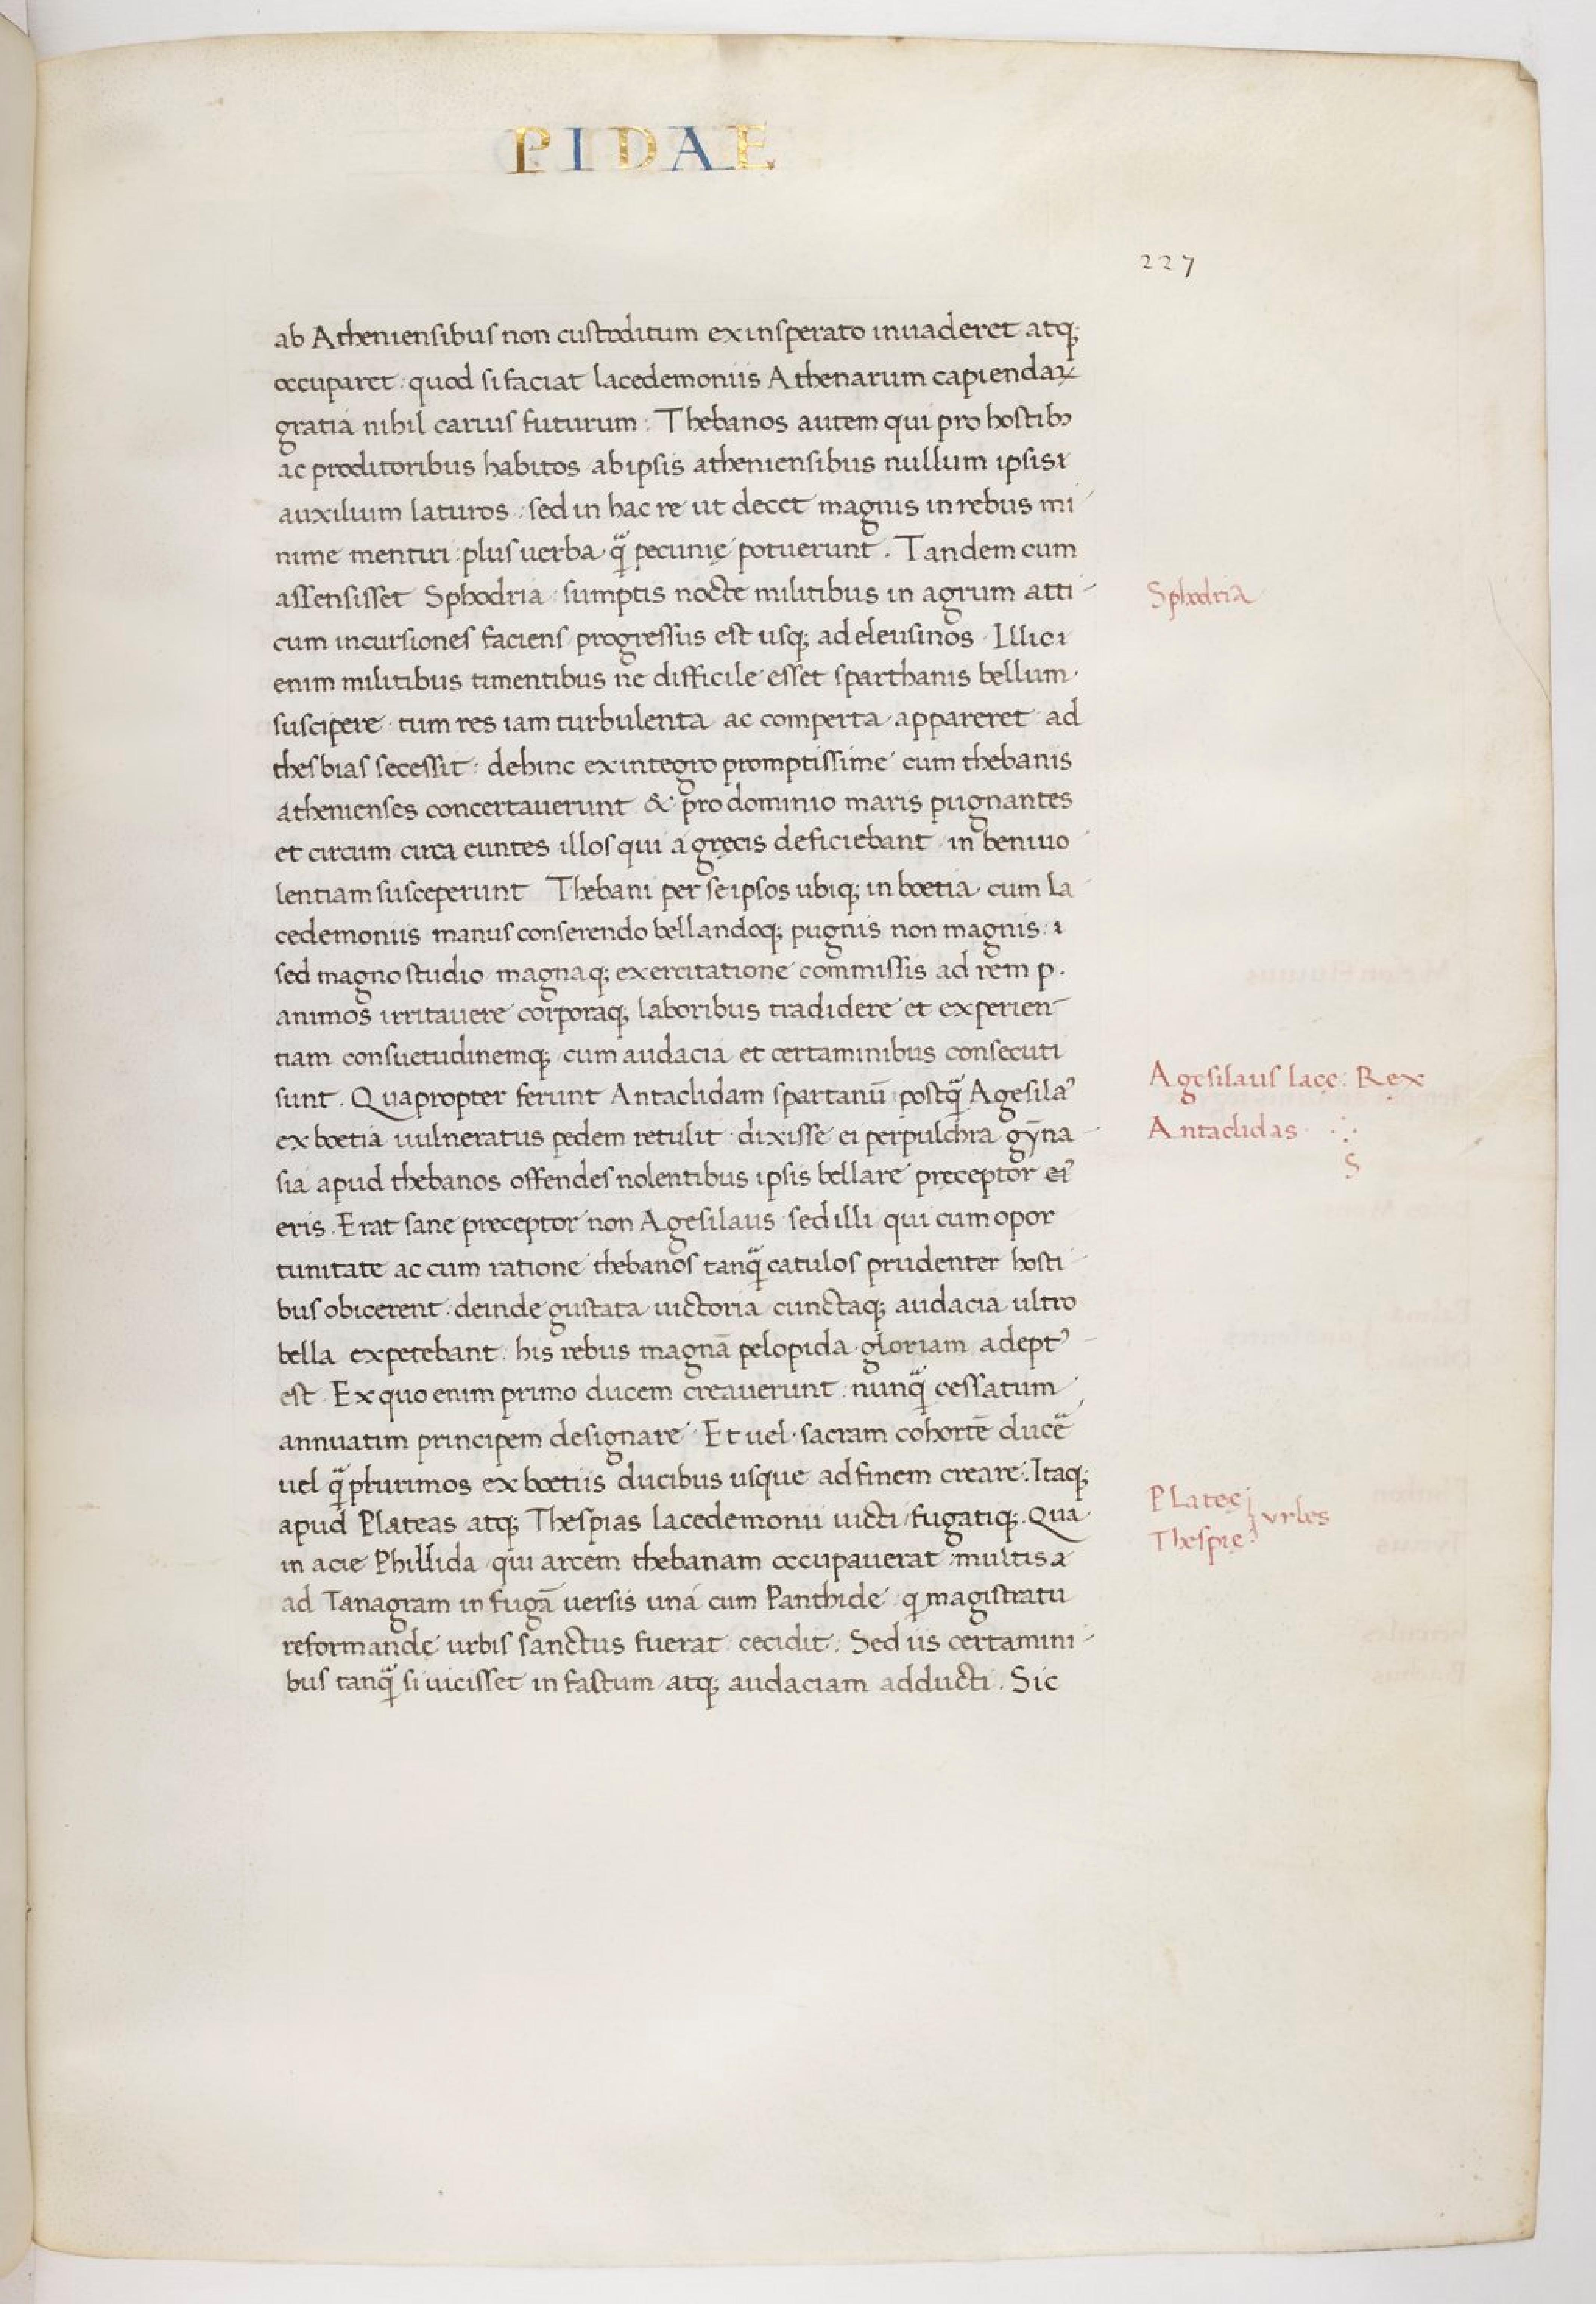 PIDAE
227
ab Atheniensibus non custoditum ex insperato inuaderet atq;
occuparet: quod si faciat lacedemoniis Athenarum capiendaꝝ
gratia nihil carius futurum: Thebanos autem qui pro hostibꝫ
ac proditoribus habitos ab ipsis atheniensibus nullum ipsis
auxilium laturos: sed in hac re ut decet magnis in rebus mi
nime mentiri: plus uerba q̃ pecunię potuerunt. Tandem cum
assensisset Sphodria: sumptis nocte militibus in agrum atti-
cum incursiones faciens progressus est usq; ad eleusinos. Illic
enim militibus timentibus ne difficile esset sparthanis bellum
suscipere tum res iam turbulenta ac comperta appareret ad
thesbias secessit: dehinc ex integro promptissime cum thebanis
athenienses concertauerunt & pro dominio maris pugnantes
et circum circa euntes illos qui a gręcis deficiebant in beniuo
lentiam susceperunt Thebani per se ipsos ubiq; in boetia cum la
cedemoniis manus conserendo bellandoq; pugnis non magnis:
sed magno studio magnaq; exercitatione commissis ad rem p.
animos irritauere corporaq; laboribus tradidere et experien-
tiam consuetudinemq; cum audacia et certaminibus consecuti
sunt. Quapropter ferunt Antaclidam spartanū postq̃ Agesilaꝰ
ex boetia uulneratus pedem retulit dixisse ei perpulchra gȳna-
sia apud thebanos offendes nolentibus ipsis bellare pręceptor eiꝰ
eris. Erat sane pręceptor non Agesilaus sed illi qui cum opor
tunitate ac cum ratione thebanos tanq̃ catulos prudenter hosti-
bus obicerent: deinde gustata uictoria cunctaq; audacia ultro
bella expetebant: his rebus magnā pelopida gloriam adeptꝰ
est. Ex quo enim primo ducem creauerunt: nunq̃ cessatum
annuatim principem designare. Et uel sacram cohortē ducē
uel q̃ plurimos ex boetiis ducibus usque ad finem creare. Itaq;
apud Plateas atq; Thespias lacedemonii uicti fugatiq;. Qua
in acie Phillida qui arcem thebanam occupauerat multis
ad Tanagram in fugā uersis una cum Panthide q magistratu
reformandę urbis sanctus fuerat cecidit: Sed iis certamini-
bus tanq̃ si uicisset in fastum atq; audaciam adducti. Sic
Sphodria
Agesilaus lacę: Rex
Antaclidas
S
Plateę
Thespię
vrbes